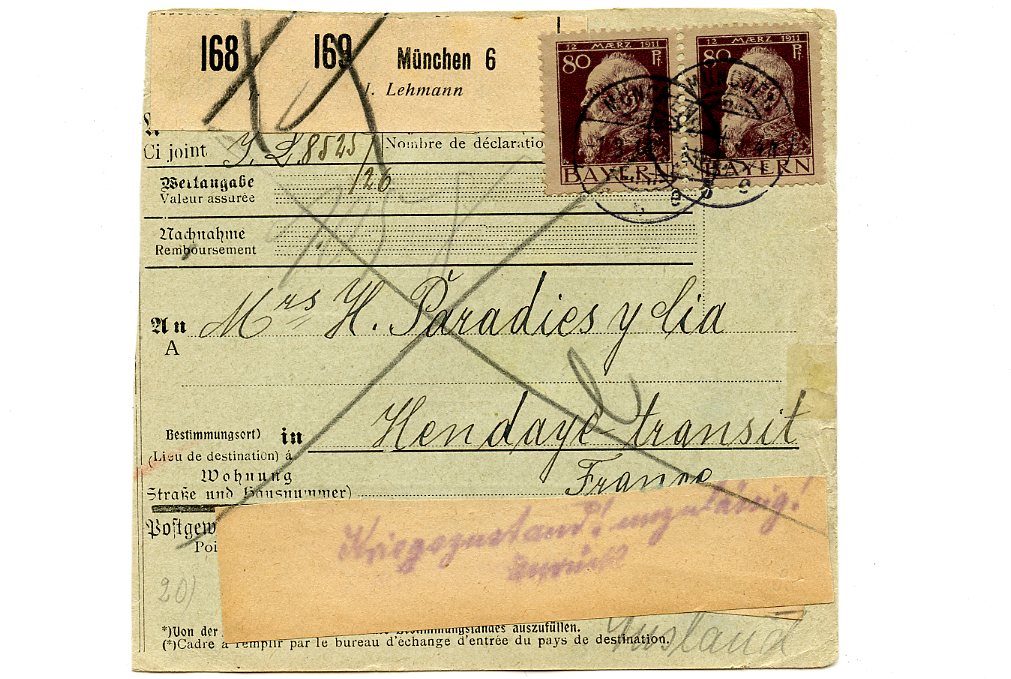 168 169 München 6
J. Lehmann
12 MÆRZ 1911 12 MÆRZ 1911
80 Pf 80 Pf
BAYERN BAYERN
MÜNCHEN
Ci joint J. L. 8525 Nombre de déclaratio
/20
Wertangabe
Valeur assurée
Nachnahme
Remboursement
An Mrs H. Paradies y Cia
A
Bestimmungsort) in Hendaye transit
(Lieu de destination) á
Wohnung France
Straße und Hausnummer)
Kriegszustand! unzulässig!
Zurück
Postgew
Poi
20)
*)Von der Bestimmungslandes auszufüllen.
(*)Cadre à remplir par le bureau d'échange d'entrée du pays de destination.
Ausland